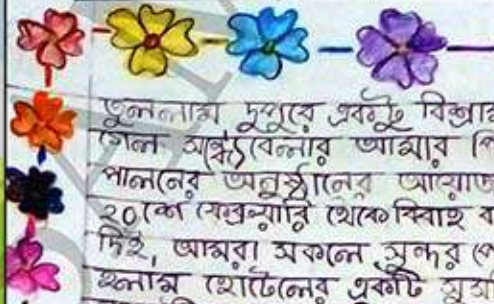 তুললাম দুপুরে একটু বিশ্রাম
গেল সন্ধ্যেবেলার আমার
পালনের অনুষ্ঠানের
২০শে ফেব্রুয়ারি থেকে বিবাহ
দিই, আমরা সকলে সুন্দর
হলাম হোটেলের একটি